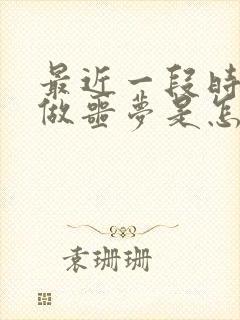 最近一段时
做噩梦是怎
袁珊珊